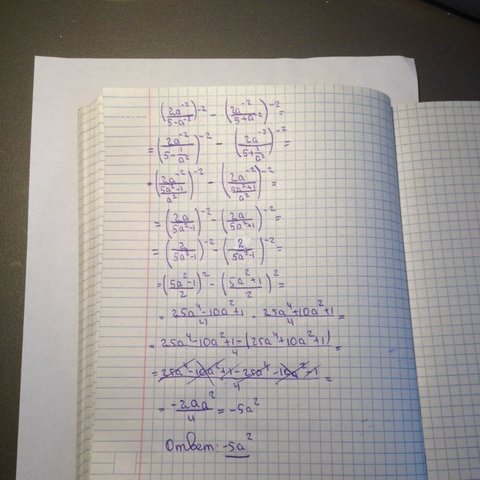 (2a⁻²/5-a⁻²)⁻² - (2a⁻²/5+a⁻²)⁻² =
= (2a⁻²/(5-1/a²))⁻² - (2a⁻²/(5+1/a²))⁻² =
= (2a⁻²/((5a²-1)/a²))⁻² - (2a⁻²/((5a²+1)/a²))⁻² =
= (2a/5a²-1)⁻² - (2a/5a²+1)⁻² =
= (2/5a²-1)⁻² - (2/5a²-1)⁻² =
= (5a²-1/2)² - (5a²+1/2)² =
= 25a⁴-10a²+1/4 - 25a⁴+10a²+1/4 =
= 25a⁴-10a²+1-(25a⁴+10a²+1)/4 =
= 25a⁴-10a²+1-25a⁴-10a²-1/4 =
= a²/4 = -5a²
Ответ: -5a²